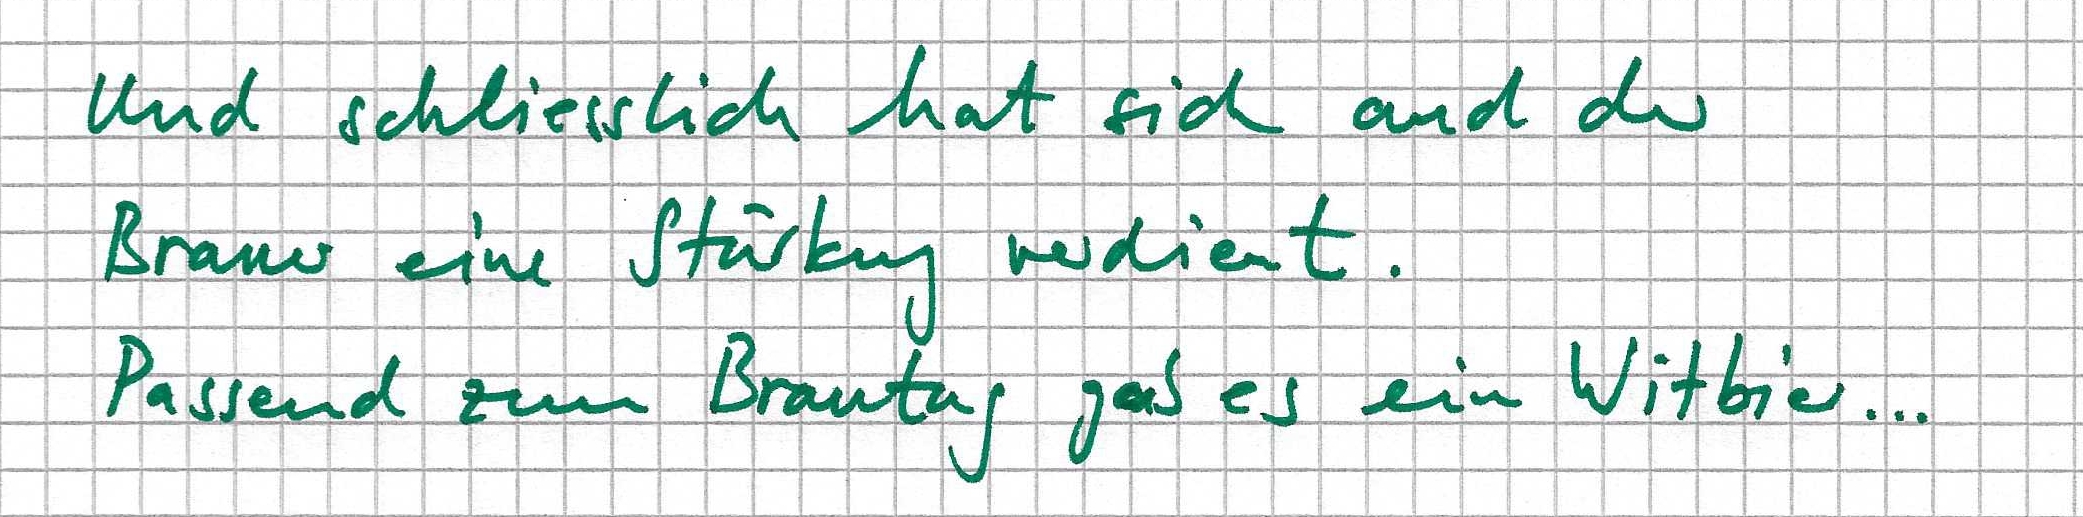 Und schliesslich hat sich auch der
Brauer eine Stärkung verdient.
Passend zum Brautag gab es ein Witbier...